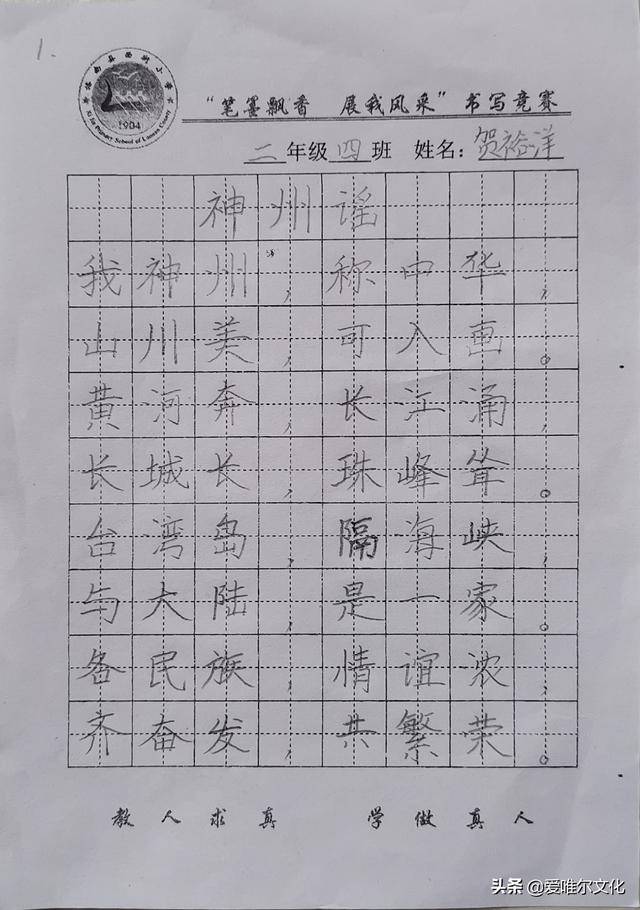 1.
1904
“笔墨飘香 展我风采”书写竞赛
二年级四班 姓名:贺裕洋
神州谣
我神州,称中华,
山川美,可入画。
黄河奔,长江涌,
长城长,珠峰耸。
台湾岛,隔海峡,
与大陆,是一家。
各民族,情谊浓,
齐奋发,共繁荣。
教人求真 学做真人
头条 @爱唯尔文化